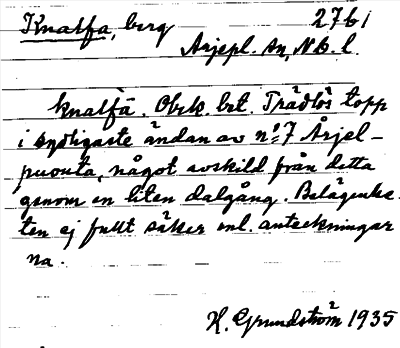 Knalfa, berg 2761
Arjepl. sn, N.B. l.
knalfà. Obek. brt. Trädlös topp
i sydligaste ändan av nº 7 Årjel-
puouta, något avskild från detta
genom en liten dalgång. Belägenhe-
ten ej fullt säker enl. anteckningar
na.
H. Grundström 1935